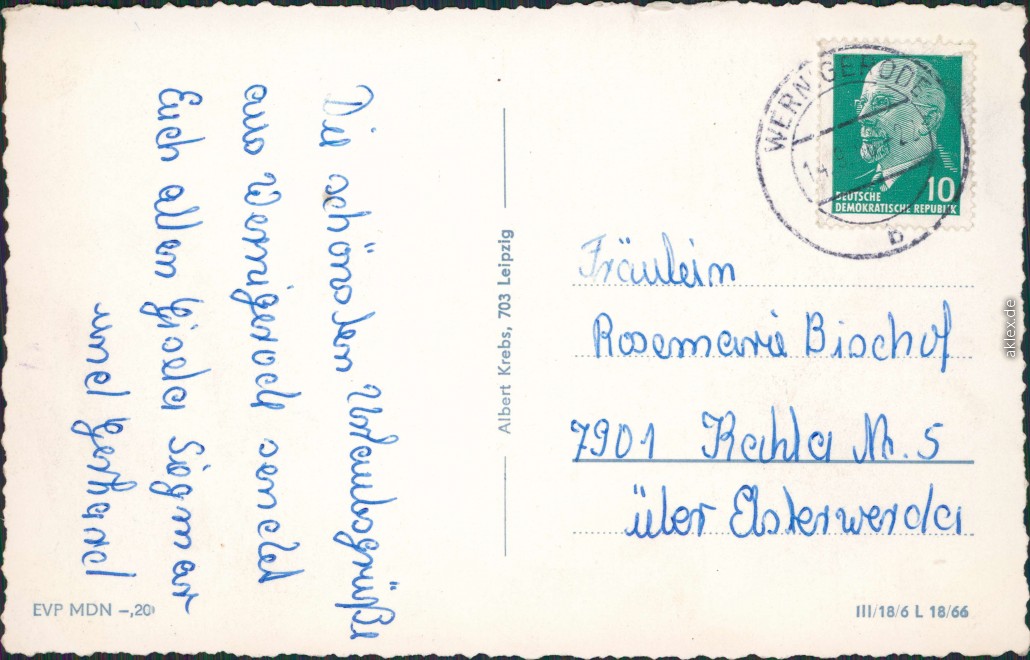 Die schönsten Urlaubsgrüße
aus Wernigerode sendet
Euch allen
und Gerhard
Albert Krebs, 703 Leipzig
WERNIGERODE
DEUTSCHE
DEMOKRATISCHE REPUBLIK
10
Fräulein
Rosemarie Bischof
7901 Kahla Nr. 5
über Elsterwerda
EVP MDN –,20
III/18/6 L 18/66
aklex.de